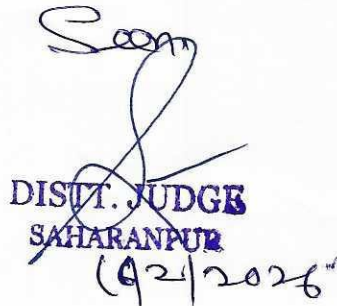 Seen
DISTT. JUDGE
SAHARANPUR
16/2/2026